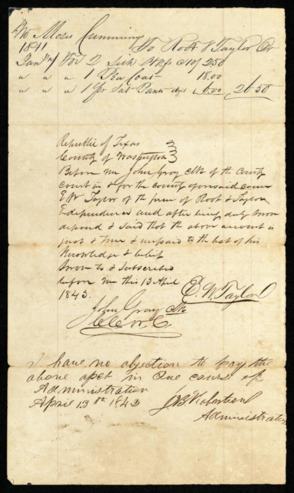 Mr Moses Cumming
1841 To Root & Taylor Dr
Jany For 2 Silk Hdkfs 2 50
" " " 1 Pea Coat 18.00
" " " 1 pr Sat Pants 6.00 26 50
Republic of Texas
County of Washington
Before me John Gray Clk of the County
Court in & for the county aforesaid came
E W Taylor of the firm of Root & Taylor
Independence and after being duly Sworn
deposed & said that the above account is
just & true & unpaid to the best of his
Knowledge & belief
Sworn to & Subscribed
before me this 13 April
1843. E. W. Taylor
John Gray Clk
C C W C
I have no objection to pay the
above acpt in due course of
Administration
April 13th 1843
Robertson
Administrator